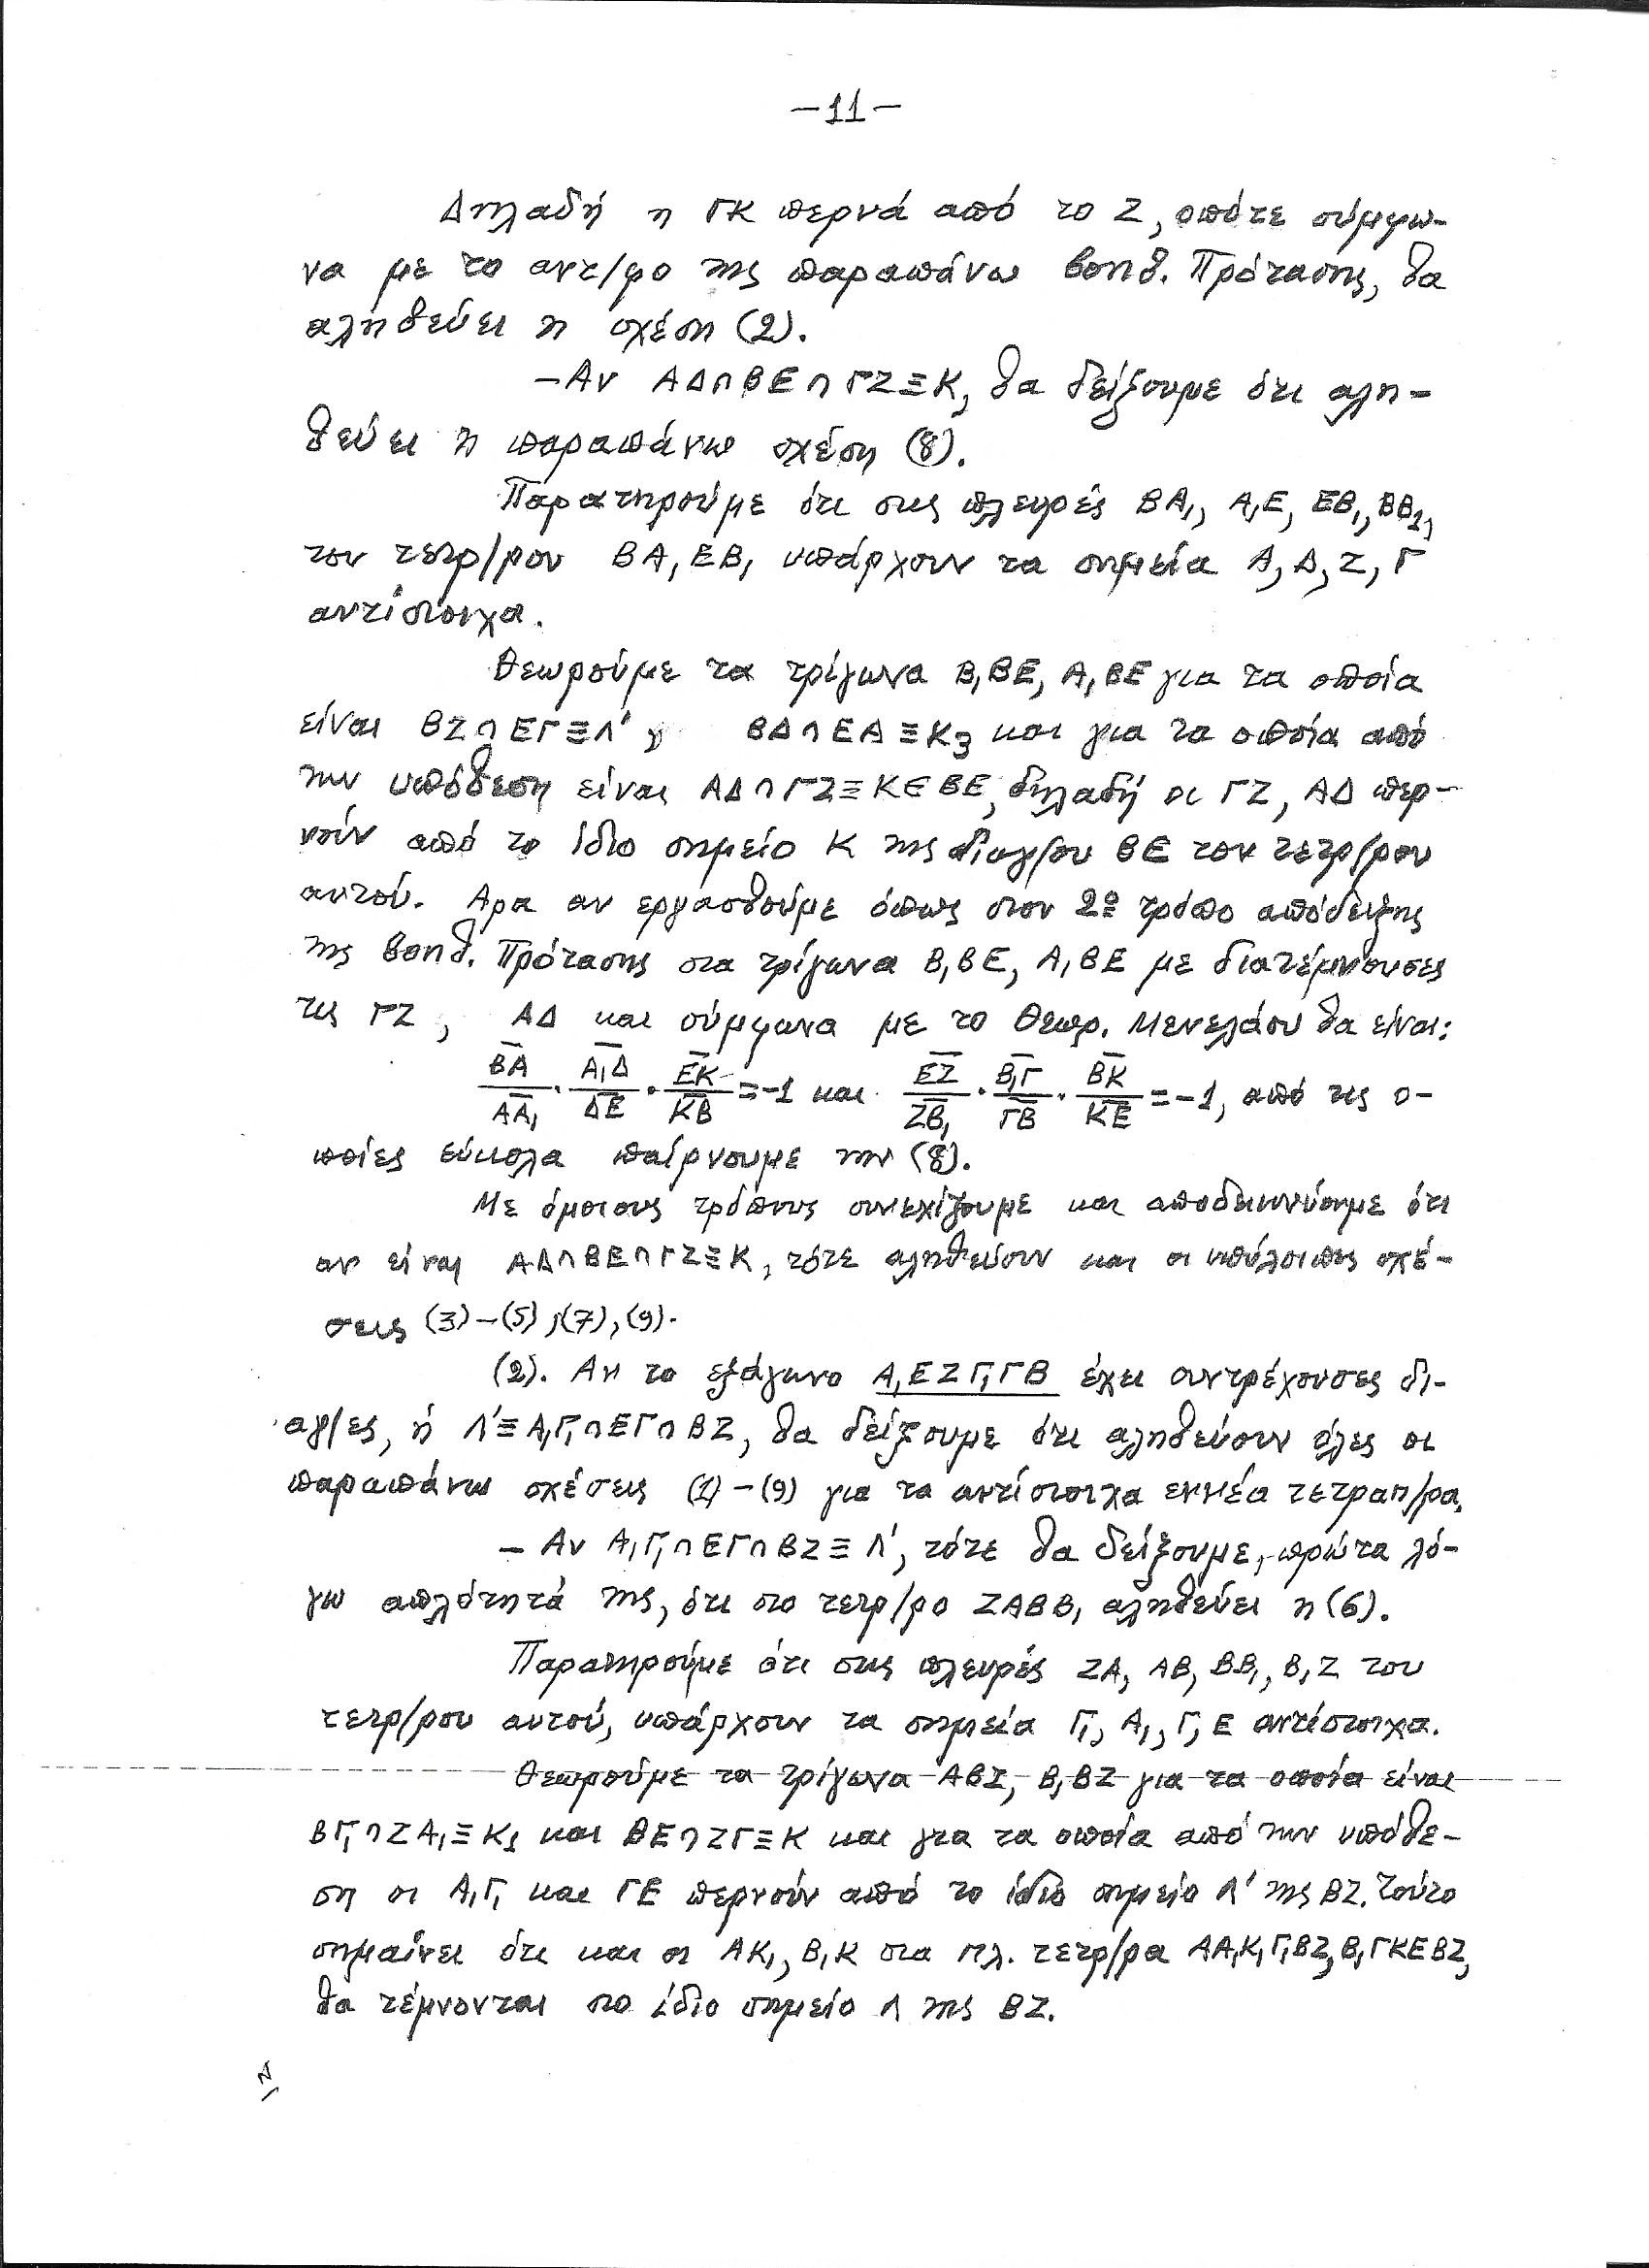 -11-
Δηλαδή η ΓΚ περνά από το Ζ, οπότε σύμφω-
να με το αντ/φο της παραπάνω βοηθ. Πρότασης, θα
αληθεύει η σχέση (2).
-Αν ΑΔ∩ΒΕ∩ΓΖ≡Κ, θα δείξουμε ότι αλη-
θεύει η παραπάνω σχέση (8).
Παρατηρούμε ότι στις πλευρές ΒΑ₁, Α₁Ε, ΕΒ₁, ΒΒ₁,
του τετρ/ρου ΒΑ₁ΕΒ₁ υπάρχουν τα σημεία Α, Δ, Ζ, Γ
αντίστοιχα.
Θεωρούμε τα τρίγωνα Β₁ΒΕ, Α₁ΒΕ για τα οποία
είναι ΒΖ∩ΕΓ≡Λ', ΒΔ∩ΕΑ≡Κ₃ και για τα οποία από
την υπόθεση είναι ΑΔ∩ΓΖ≡Κ∈ΒΕ, δηλαδή οι ΓΖ, ΑΔ περ-
νούν από το ίδιο σημείο Κ της διαγ/ου ΒΕ του τετρ/ρου
αυτού. Αρα αν εργασθούμε όπως στον 2º τρόπο απόδειξης
της βοηθ. Πρότασης στα τρίγωνα Β₁ΒΕ, Α₁ΒΕ με διατέμνουσες
τις ΓΖ, ΑΔ και σύμφωνα με το Θεωρ. Μενελάου θα είναι:
B̅A̅/A̅A̅₁ · A̅₁Δ̅/Δ̅E̅ · E̅K̅/K̅B̅ = -1 και E̅Z̅/Z̅B̅₁ · B̅₁Γ̅/Γ̅B̅ · B̅K̅/K̅E̅ = -1, από τις ο-
ποίες εύκολα παίρνουμε την (8).
Με όμοιους τρόπους συνεχίζουμε και αποδεικνύουμε ότι
αν είναι ΑΔ∩ΒΕ∩ΓΖ≡Κ, τότε αληθεύουν και οι υπόλοιπες σχέ-
σεις (3)-(5), (7), (9).
(2). Αν το εξάγωνο Α₁ΕΖΓ₁ΓΒ έχει συντρέχουσες δι-
αγ/ες, ή Λ'≡Α₁Γ₁∩ΕΓ∩ΒΖ, θα δείξουμε ότι αληθεύουν όλες οι
παραπάνω σχέσεις (1)-(9) για τα αντίστοιχα εννέα τετραπ/ρα.
- Αν Α₁Γ₁∩ΕΓ∩ΒΖ≡Λ', τότε θα δείξουμε, πρώτα λό-
γω απλότητά της, ότι στο τετρ/ρο ΖΑΒΒ₁ αληθεύει η (6).
Παρατηρούμε ότι στις πλευρές ΖΑ, ΑΒ, ΒΒ₁, Β₁Ζ του
τετρ/ρου αυτού, υπάρχουν τα σημεία Γ₁, Α₁, Γ, Ε αντίστοιχα.
Θεωρούμε τα τρίγωνα ΑΒΖ, Β₁ΒΖ για τα οποία είναι
ΒΓ₁∩ΖΑ₁≡Κ₁ και ΒΕ∩ΖΓ≡Κ και για τα οποία από την υπόθε-
ση οι Α₁Γ₁ και ΓΕ περνούν από το ίδιο σημείο Λ' της ΒΖ. Τούτο
σημαίνει ότι και οι ΑΚ₁, Β₁Κ στα πλ. τετρ/ρα ΑΑ₁Κ₁Γ₁ΒΖ, Β₁ΓΚΕΒΖ,
θα τέμνονται στο ίδιο σημείο Λ της ΒΖ.